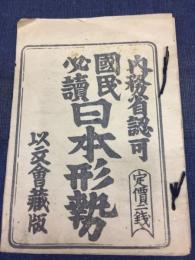 内務省認可
國民
必讀
日本形勢
定價二錢
以文會藏版